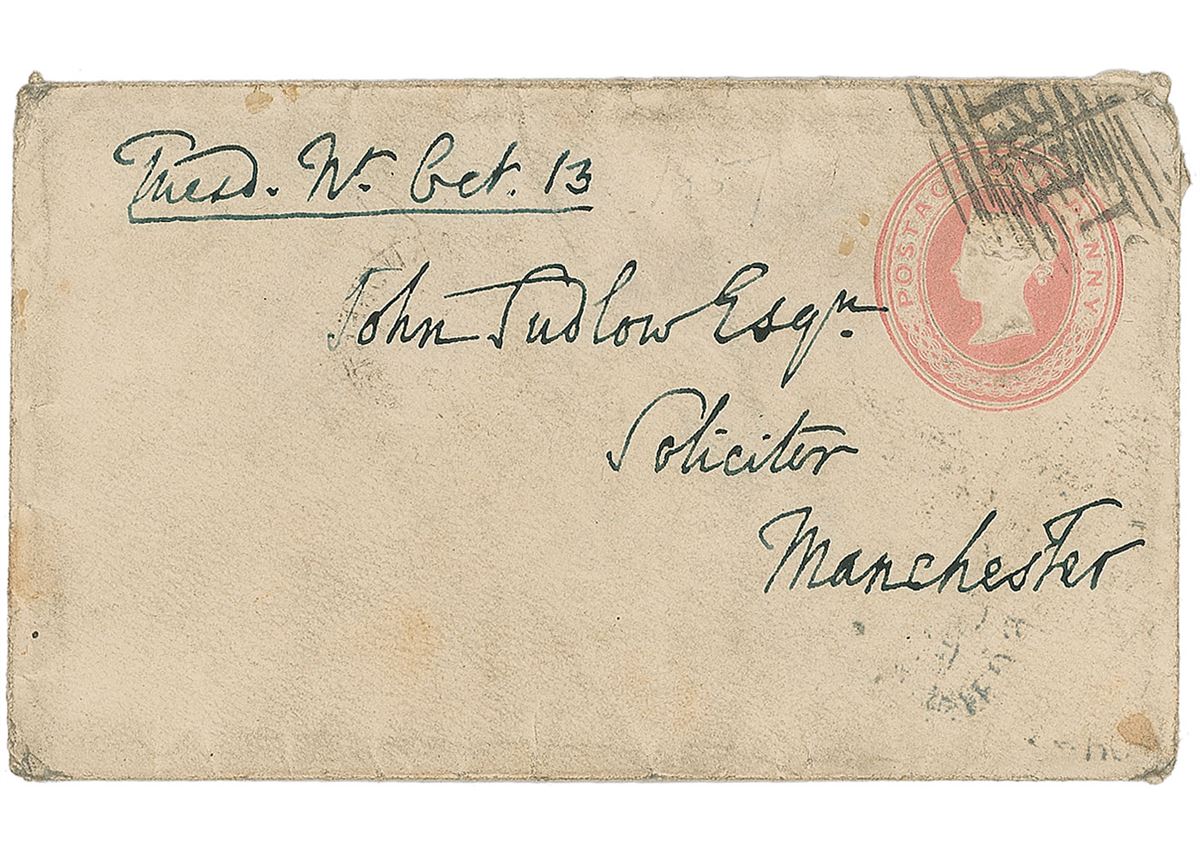 Tuesd. Nt. Oct. 13
POSTAGE ONE PENNY
John Tudlow Esqr.
Solicitor
Manchester